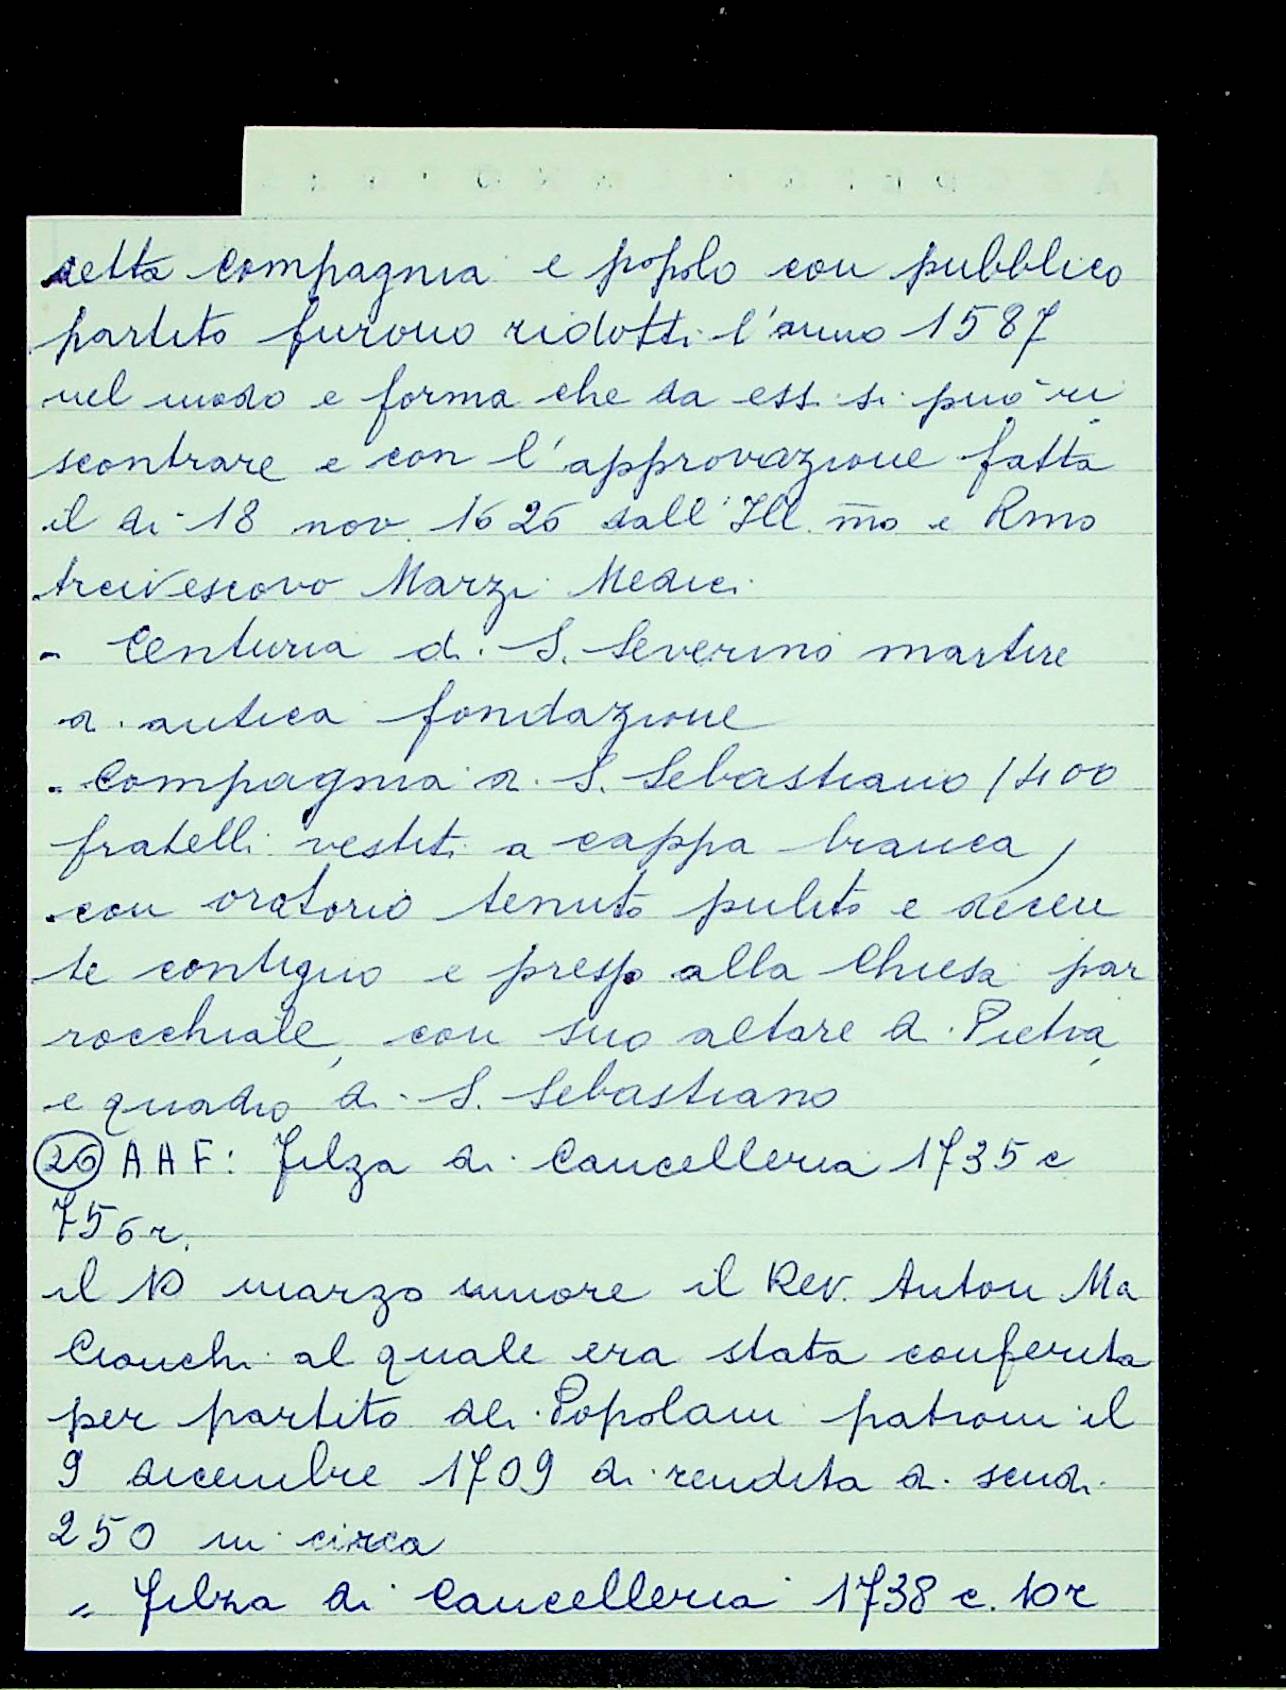 detta compagnia e popolo con pubblico
partito furono ridotti l'anno 1587
nel modo e forma che da essi si può ri
scontrare e con l'approvazione fatta
il dì 18 nov. 1626 dall'Ill.mo e Rmo
Arcivescovo Marzi Medici
- Centuria di S. Severino martire
di antica fondazione
- Compagnia di S. Sebastiano / 400
fratelli vestiti a cappa bianca,
con oratorio tenuto pulito e decen
te contiguo e presso alla Chiesa par
rocchiale, con suo altare di Pietra,
e quadro di S. Sebastiano
26 AAF: Filza di Cancelleria 1735 c
756r.
il 10 marzo muore il Rev. Anton Ma
Cionchi al quale era stata conferita
per partito dei Popolani patroni il
9 dicembre 1709 di rendita di scudi
250 in circa
" Filza di Cancelleria 1738 c. 10r